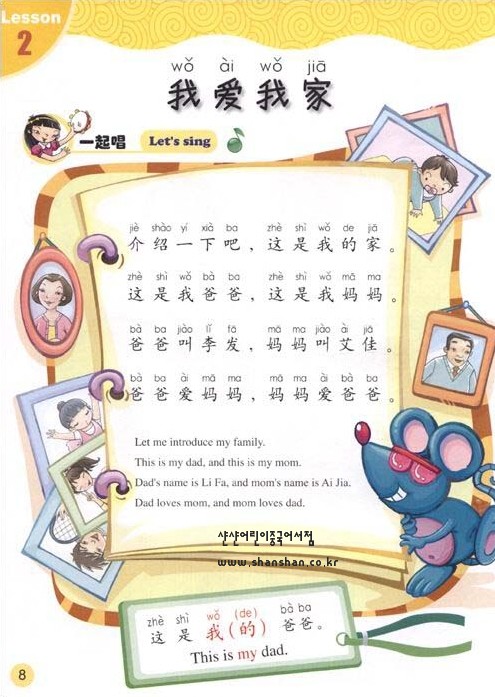 Lesson
2
wǒ ài wǒ jiā
我爱我家
一起唱 Let's sing
jiè shào yí xià ba zhè shì wǒ de jiā
介绍一下吧，这是我的家。
zhè shì wǒ bà ba zhè shì wǒ mā ma
这是我爸爸，这是我妈妈。
bà ba jiào lǐ fā mā ma jiào ài jiā
爸爸叫李发，妈妈叫艾佳。
bà ba ài mā ma mā ma ài bà ba
爸爸爱妈妈，妈妈爱爸爸。
Let me introduce my family.
This is my dad, and this is my mom.
Dad's name is Li Fa, and mom's name is Ai Jia.
Dad loves mom, and mom loves dad.
샨샨어린이중국어서점
www.shanshan.co.kr
zhè shì wǒ (de) bà ba
这是我(的)爸爸。
This is my dad.
8